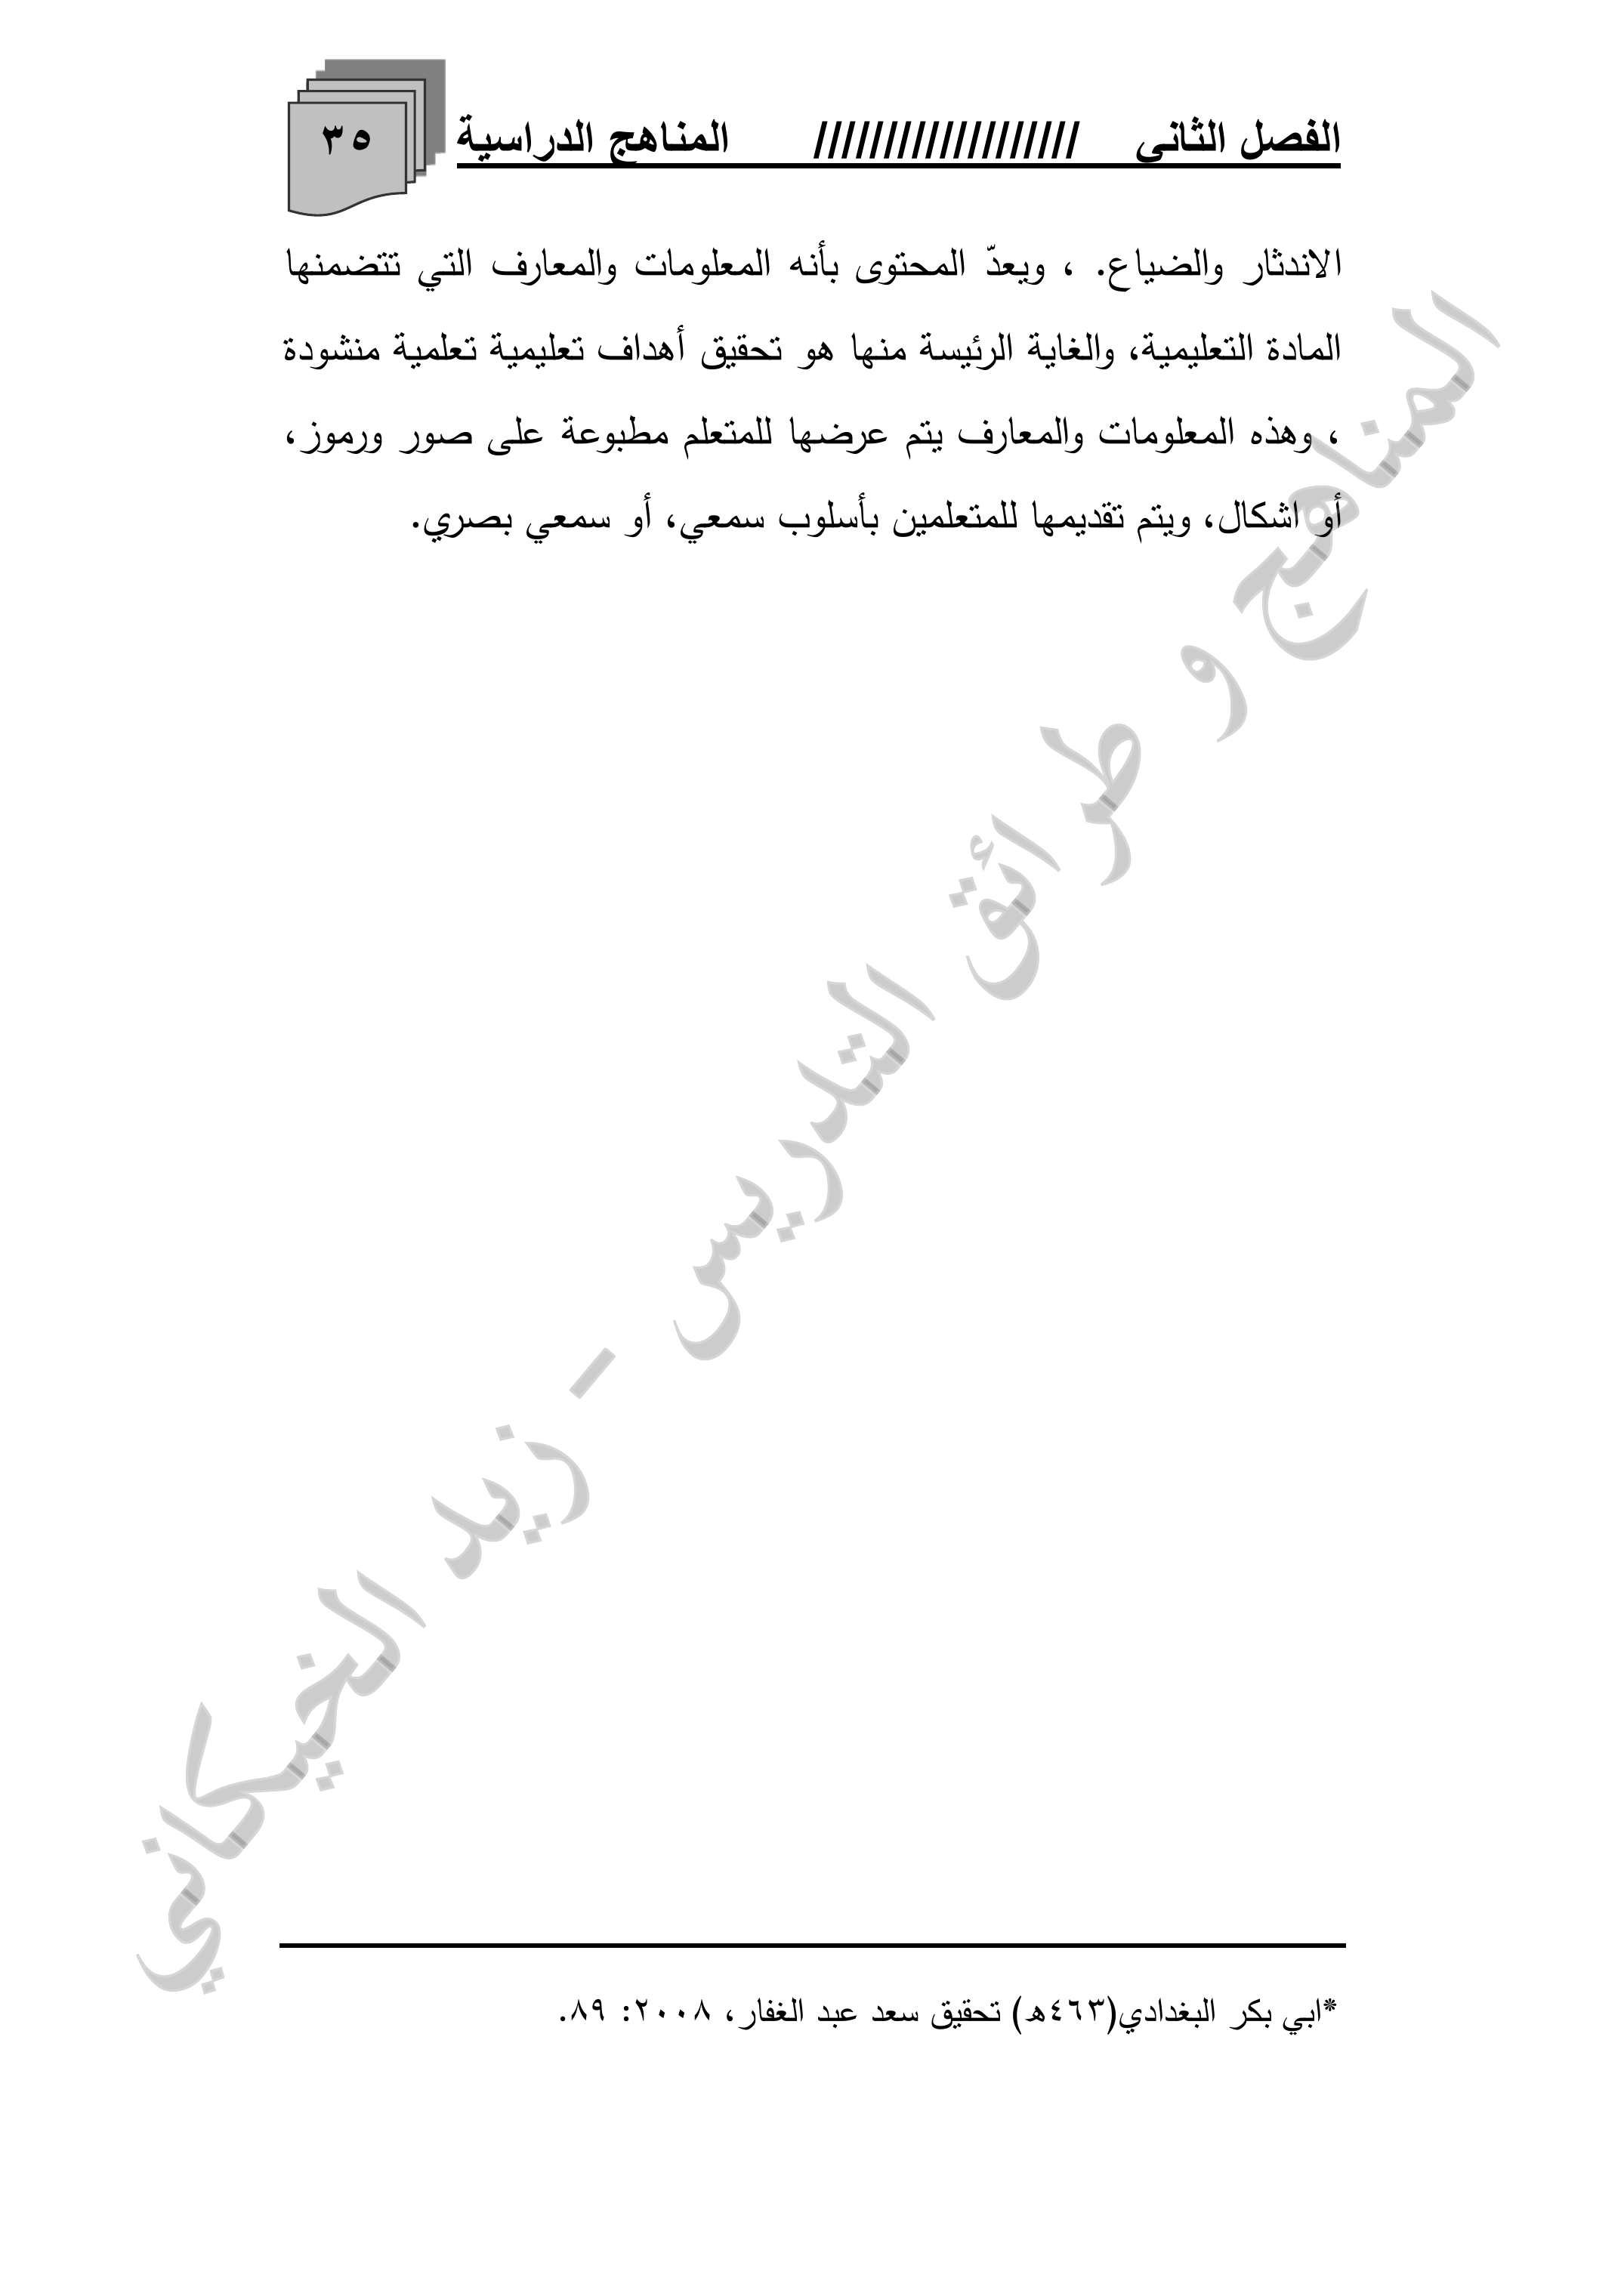 الفصل الثاني /////////////////// المناهج الدراسية ٣٥
الاندثار والضياع. ، ويعدّ المحتوى بأنه المعلومات والمعارف التي تتضمنها
المادة التعليمية، والغاية الرئيسة منها هو تحقيق أهداف تعليمية تعلمية منشودة
، وهذه المعلومات والمعارف يتم عرضها للمتعلم مطبوعة على صور ورموز،
أو اشكال، ويتم تقديمها للمتعلمين بأسلوب سمعي، أو سمعي بصري.
المناهج و طرائق التدريس - زيد الخيكاني
*ابي بكر البغدادي(٤٦٣ه) تحقيق سعد عبد الغفار، ٢٠٠٨: ٨٩.